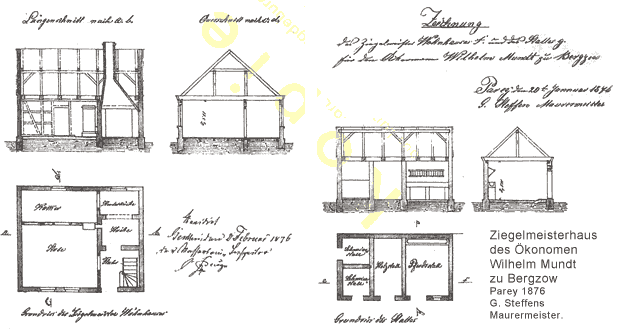 Längenschnitt nach a. b.
Querschnitt nach c. d.
Zeichnung
des Ziegelmeister Wohnhauses f. und des Stalles g.
für den Ackermann Wilhelm Mundt zu Bergzow
Parey, den 20t Januar 1876
G. Steffens Maurermeister
Kammer
Stube
Küche
Flur
Revidirt
Genthin den 8 Februar 1876
der Wasserbau Inspector
Grundriss des Ziegelmeister Wohnhauses
Schweine
Stall
Schweine
Stall
Holzstall
Pferdestall
Grundriss des Stalles
Ziegelmeisterhaus
des Ökonomen
Wilhelm Mundt
zu Bergzow
Parey 1876
G. Steffens
Maurermeister.